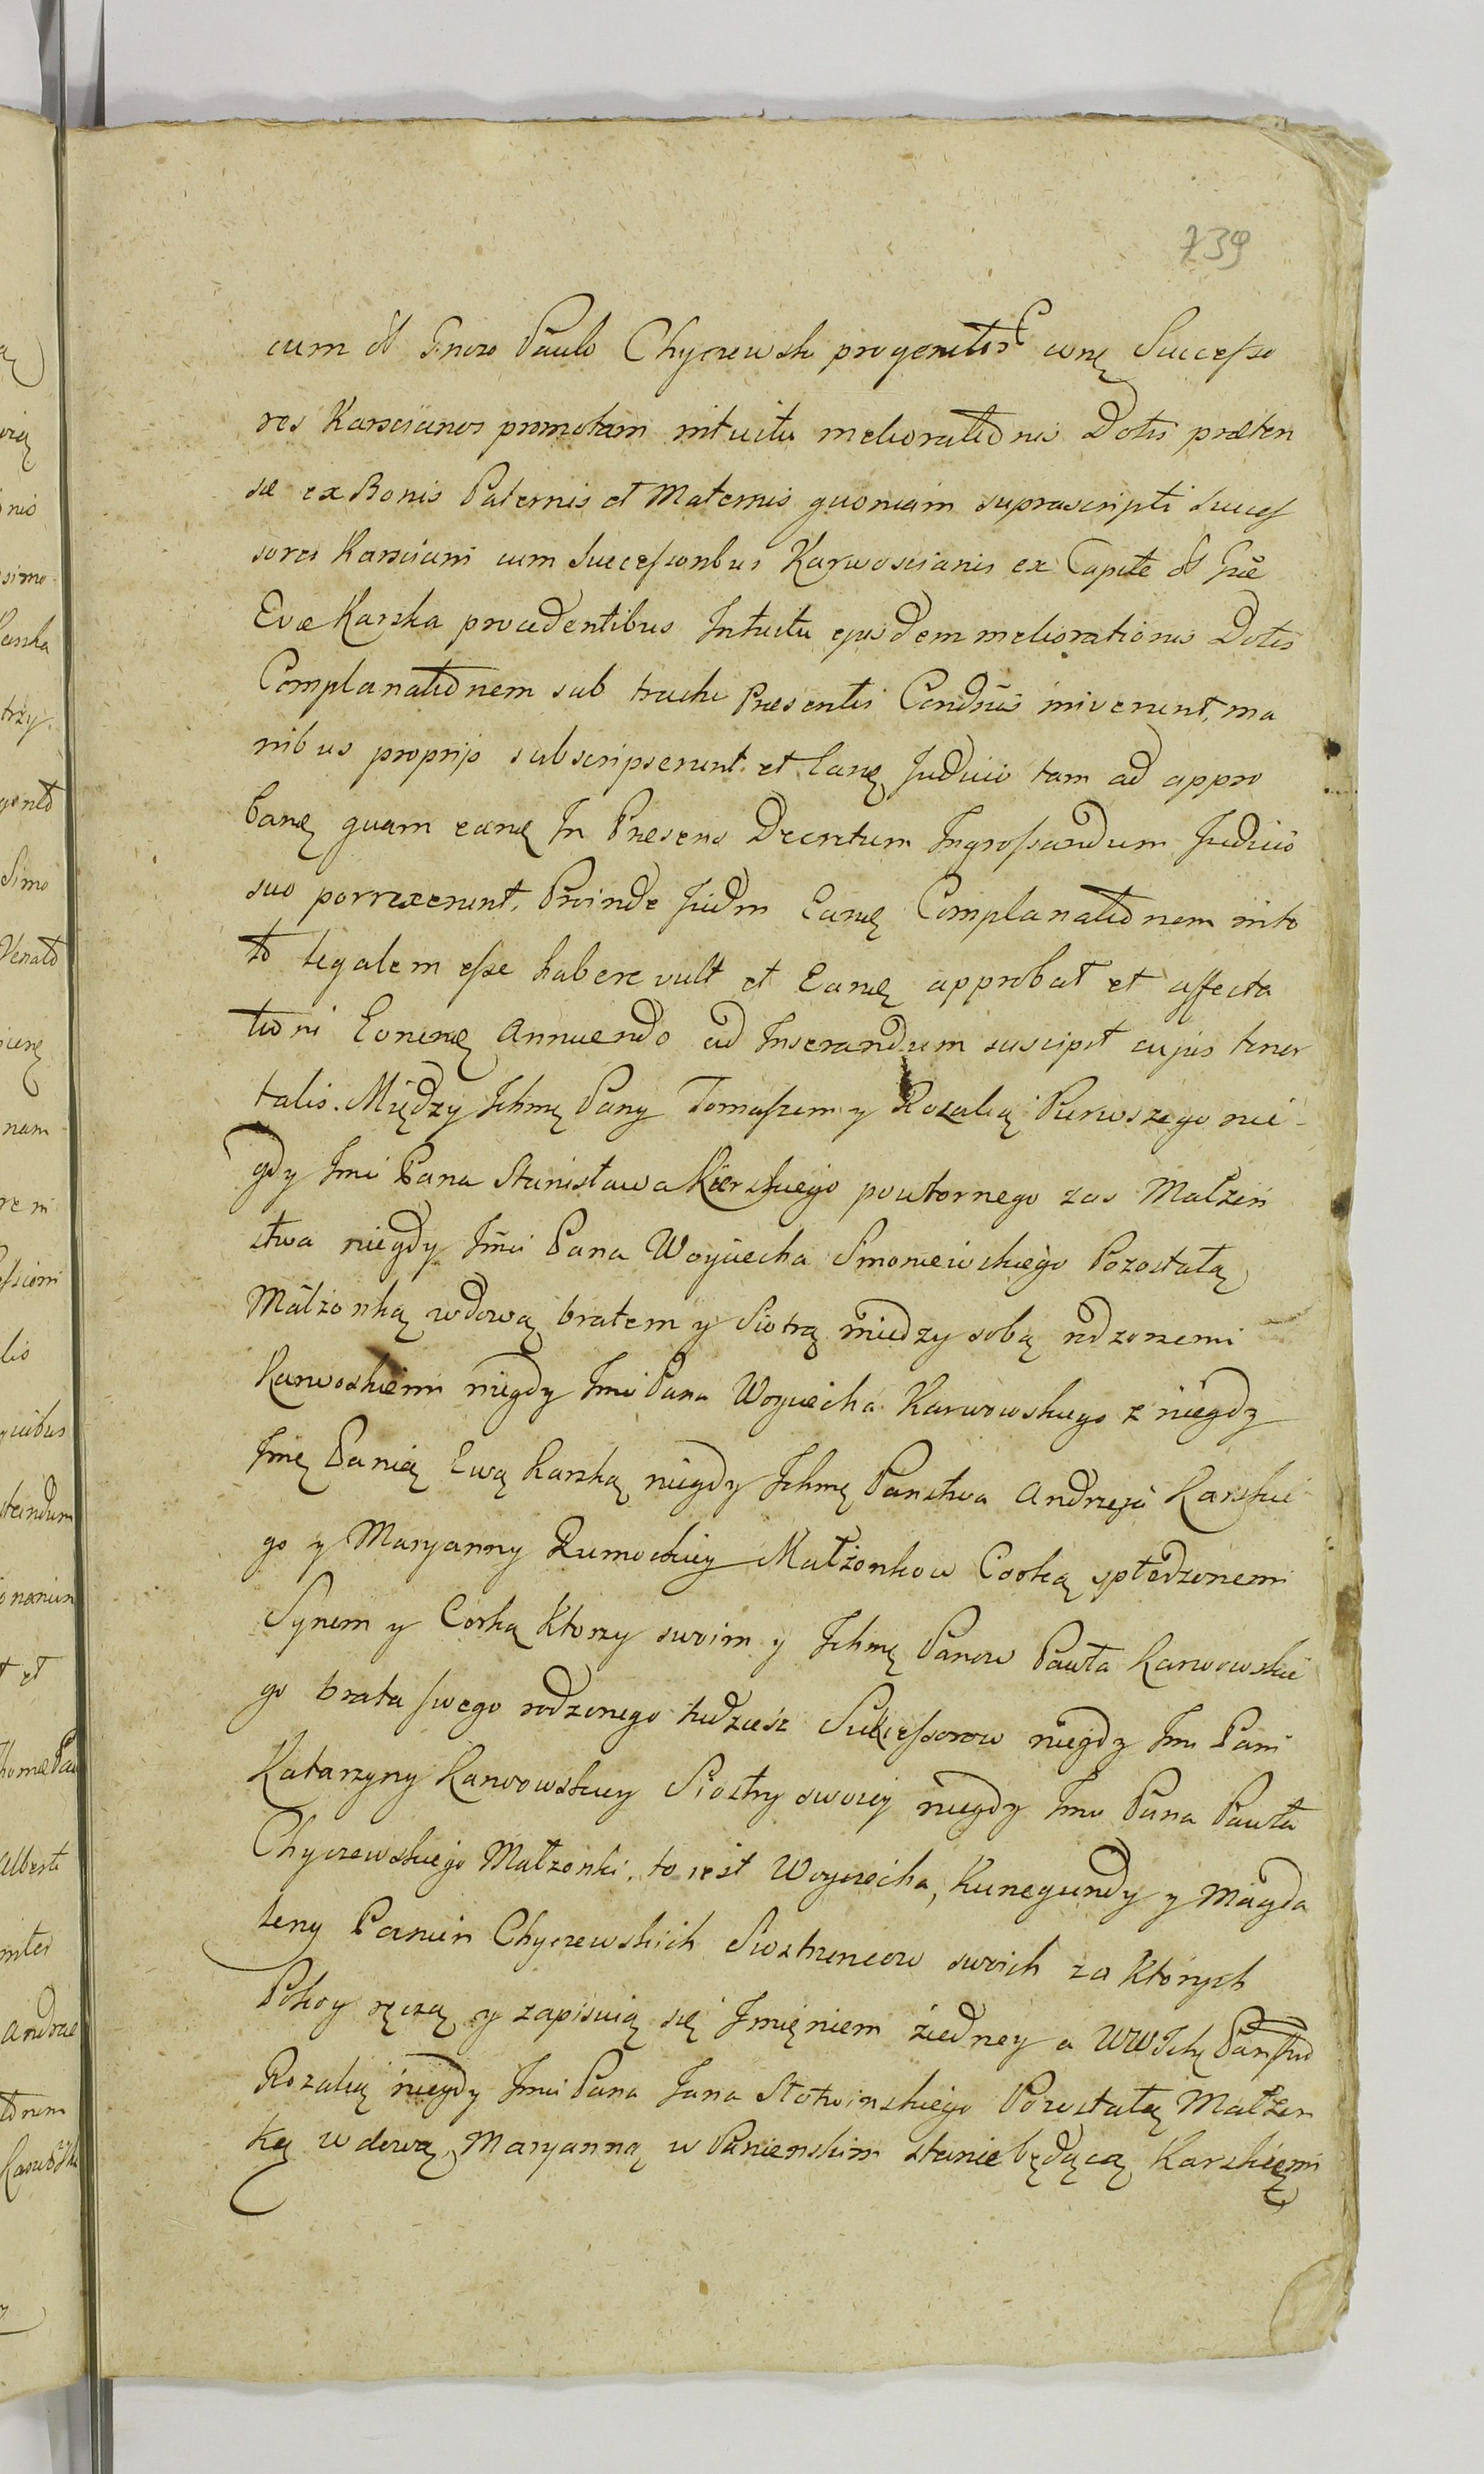 739
cum Paulo Chyczewski progenitor Successo
res Karscianos promotam intuitu meliorationis Dotis præten
sæ ex Bonis Paternis et Maternis quoniam suprascripti Succes
sores Karsciani cum Successoribus Karwoscianis ex Capite
Evæ Karska procedentibus Intuitu ejusdem meliorationis Dotis
Complanationem sub tractu Præsentis inivenunt, ma
nibus proprijs subscripserunt et Judicii tam ad appro
quam In Præsens Decretum Ingrossandum Judicio
suo porrexerunt, Proinde Judm Complanationem in to
to legalem esse habere vult et approbat et affecta
tioni annuendo ad Inserandum suscipit cujus tenor
talis. Między Ichmę Pany Tomaszem y Rozalią Pierwszego nie
gdy Jmci Pana Stanisława Kierskiego powtornego zas Małzen
stwa niegdy Jmci Pana Woyciecha Smoniewskiego Pozostałą
Małzonką wdową bratem y Siotrą między sobą rdzonemi
Karwoskiemi niegdy Jmci Pana Woyciecha Karwowskiego z niegdy
Jmę Panią Ewą Karską niegdy Ichmę Panstwa Andrzeja Karskie
go y Maryanny Rumockiey Małżonkow Corką spłodzonemi
Synem y Corką Ktorzy swoim y Ichmę Panow Pawła Karwowskie
go brata swego rodzonego tudziesz Sukcessorow niegdy Jmci Pani
Katarzyny Karwowskiey Siostry swoiey niegdy Jmci Pana Pawła
Chyczewskiego Małzonki. to iest Woyciecha, Kunegundy y Magda
leny Panien Chyczewskich Siostrzencow swoich za Ktorych
Pokoy ręczą y zapisuią się Imięniem ziedney a WW Ich
Rozalią niegdy Jmci Pana Jana Słotwinskiego Pozostałą Małzon
ką wdową, Maryanną w Panienskim stanie będącą Karskiemi